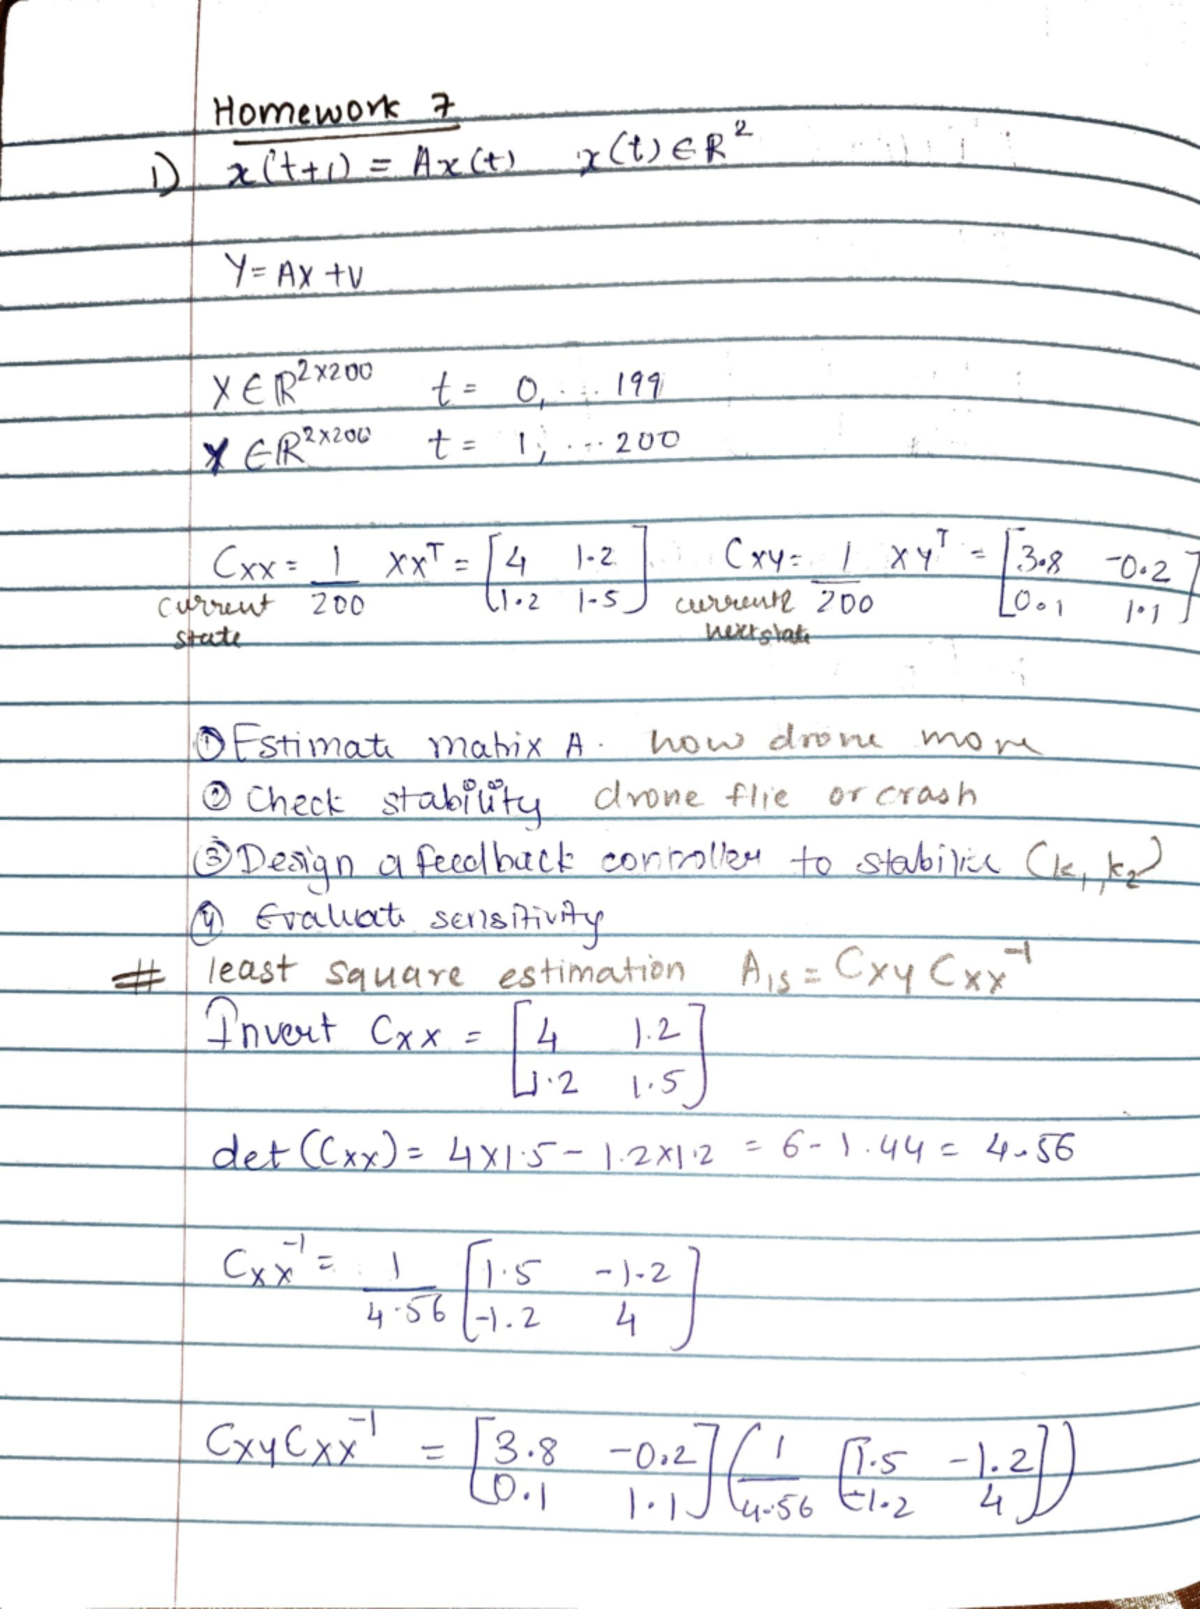 Homework 7
1) x(t+1) = Ax(t) x(t) ∈ R^2
Y = AX + V
X ∈ R^{2×200} t = 0, ... 199
Y ∈ R^{2×200} t = 1, ... 200
Cxx = 1/200 XX^T = [4 1.2; 1.2 1.5] Cxy = 1/200 XY^T = [3.8 -0.2; 0.1 1.1]
current state current next state
① Estimate matrix A. how drone move
② Check stability drone flie or crash
③ Design a feedback controller to stabilize (k1, k2)
④ Evaluate sensitivity
# least square estimation A_ls = Cxy Cxx^{-1}
Invert Cxx = [4 1.2; 1.2 1.5]
det(Cxx) = 4×1.5 - 1.2×1.2 = 6 - 1.44 = 4.56
Cxx^{-1} = 1/4.56 [1.5 -1.2; -1.2 4]
CxyCxx^{-1} = [3.8 -0.2; 0.1 1.1] (1/4.56 [1.5 -1.2; -1.2 4])